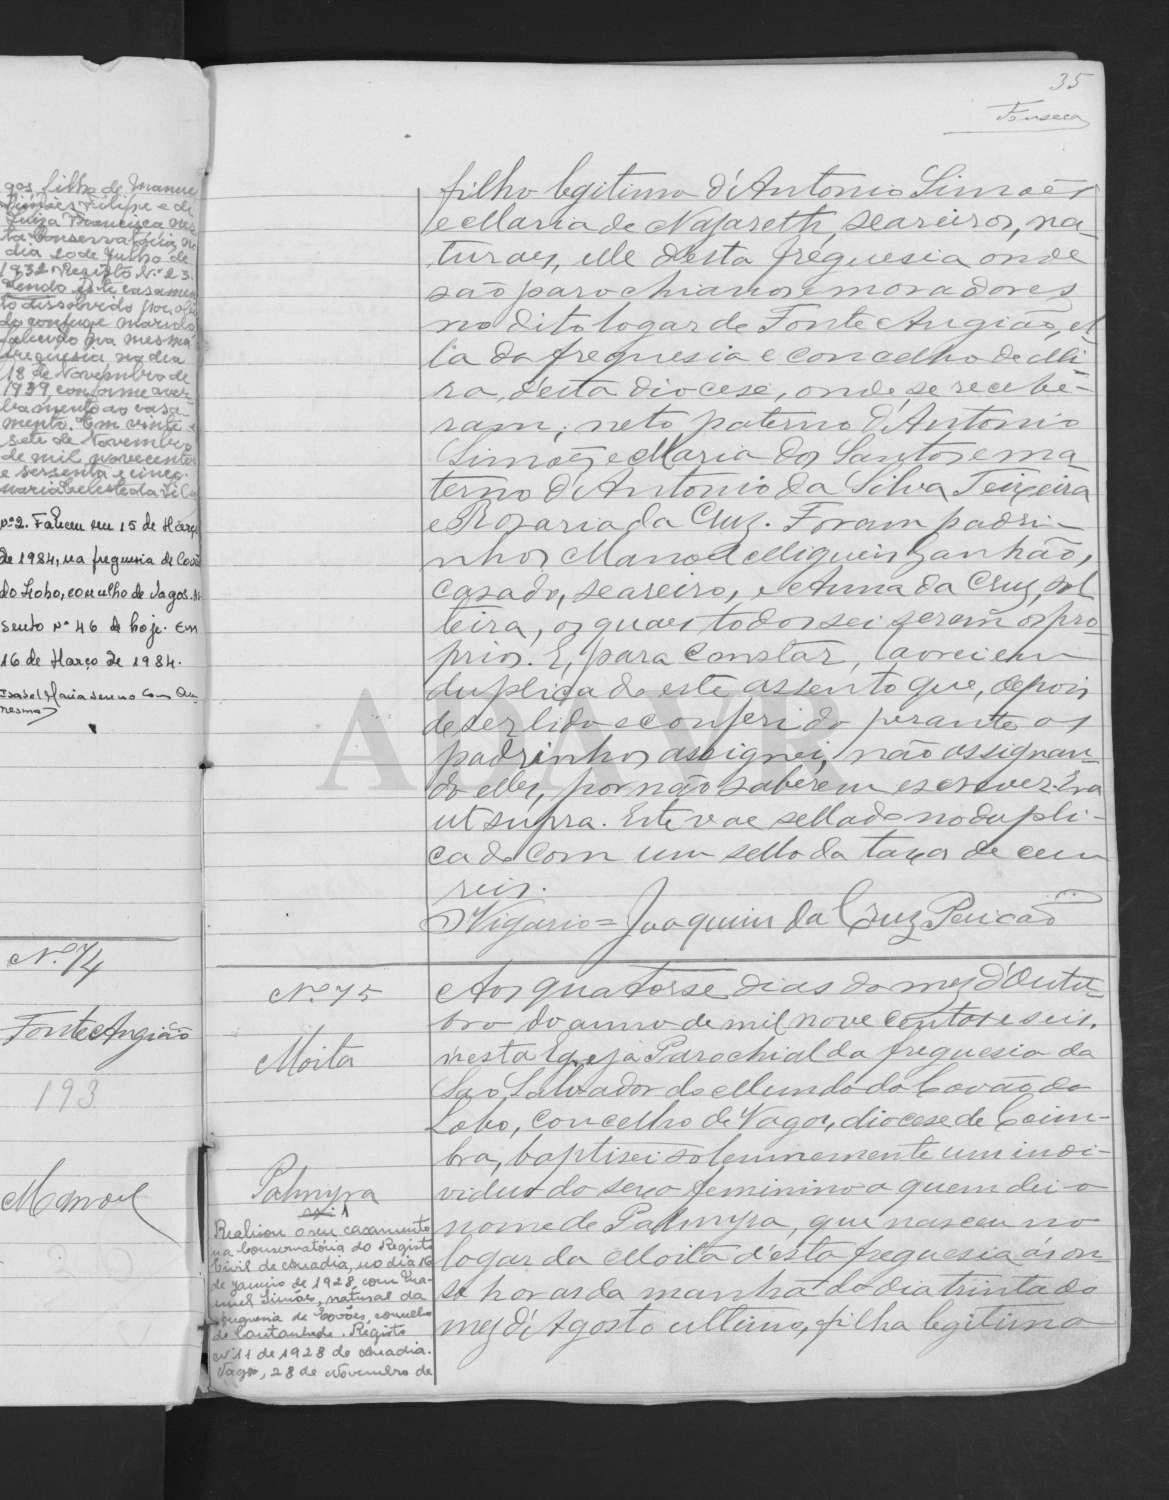 gos, filha de Manuel
Simões Filipe e de
Luiza Francisca
ta Conservatória, no
dia 20 de Julho de
1932. Registo Nº 23.
Sendo este casamen
to dissolvido por
do conjuge marido
falecido na mesma
freguesia, no dia
18 de Novembro de
1939, conforme aver
bamento ao casa-
mento. Em vinte e
sete de Novembro
de mil novecentos
e sessenta e cinco
Maria Celeste da Silva
Nº 2. Faleceu em 15 de Março
de 1984, na freguesia de Covão
do Lobo, concelho de Vagos. As-
sento Nº 46 de hoje. Em
16 de Março de 1984.
Isabel Maria
Nº 74
Fonte Angião
193
Manoel
35
Fonseca
filho legitimo d'Antonio Simões
e Maria de Nazareth, seareiros, na-
turaes, elle desta freguesia onde
são parochianos e moradores
no dito logar de Fonte Angião, el-
la da freguesia e concelho de Mi-
ra, d'esta diocese, onde se recebe-
ram; neto paterno d'Antonio
Simões e Maria dos Santos e ma-
terno d'Antonio da Silva Teixeira
e Rozaria da Cruz. Foram padri-
nhos Manoel Migueis Janhão,
casado, seareiro, e Anna da Cruz, sol-
teira, os quaes todos sei serem os pro-
prios. E, para constar, lavrei em
duplicado este assento que, depois
de ser lido e conferido perante os
padrinhos assignei, não assignan-
do elles, por não saberem escrever. Era
ut supra. Este vae sellado no dupli-
cado com um sello da taxa de cem
reis.
O Vigario = Joaquim da Cruz Pericão
Nº 75
Moita
Palmyra
Nº 1
Realisou o seu casamento
na Conservatória do Registo
Civil de Anadia, no dia 16
de Janeiro de 1928, com Ma-
nuel Simões, natural da
freguesia de Covões, concelho
de Cantanhede. Registo
nº 11 de 1928 de Anadia.
Vagos, 28 de Novembro de
Aos quatorse dias do mez d'Outu-
bro do anno de mil nove centos e seis,
n'esta Egreja Parochial da freguesia da
São Salvador do Mundo do Covão do
Lobo, concelho de Vagos, diocese de Coim-
bra, baptisei solemnemente um indi-
viduo do sexo feminino a quem dei o
nome de Palmyra, que nasceu no
logar da Moita d'esta freguesia ás on-
se horas da manhã do dia trinta do
mez d'Agosto ultimo, filha legitima
ADAVR